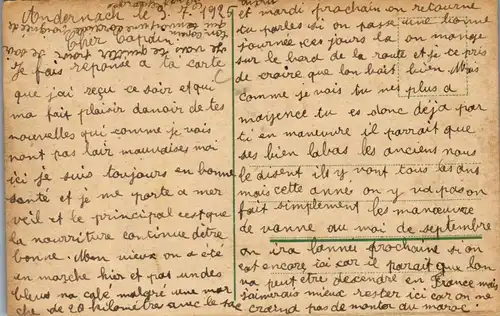 Andernach le 3 1925
Cher
Je fais réponse a ta carte
que j'ai reçue ce soir et qui
ma fait plaisir davoir de tes
nouvelles qui comme je vois
nont pas lair mauvaises moi
ici je suis toujours en bonne
santé et je me porte a mer
veil et le principal cest que
la nourriture continue detre
bonne. Mon vieux on a été
en marche hier et pas un des
bleus na calé malgré une mar
che de 20 kilomètres avec le sac
et mardi prochain on retourne
tu parles si on passe une bonne
journée ces jours la on mange
sur le bord de la route et je te prie
de croire que lon bait bien Mais
comme je vois tu nes plus a
mayence tu es donc déja par
ti en maneuvre il parrait que
ses bien labas les anciens nous
le disent ils y vont tous les ans
mais cette année on y va pas on
fait simplement les manœuvre
de vanne au moi de septembre
on ira lannee prochaine si on
est encore ici car il parait que lon
va peut être descendre en France mais
jaimerais mieux rester ici car on ne
craend pas de monter du maroc